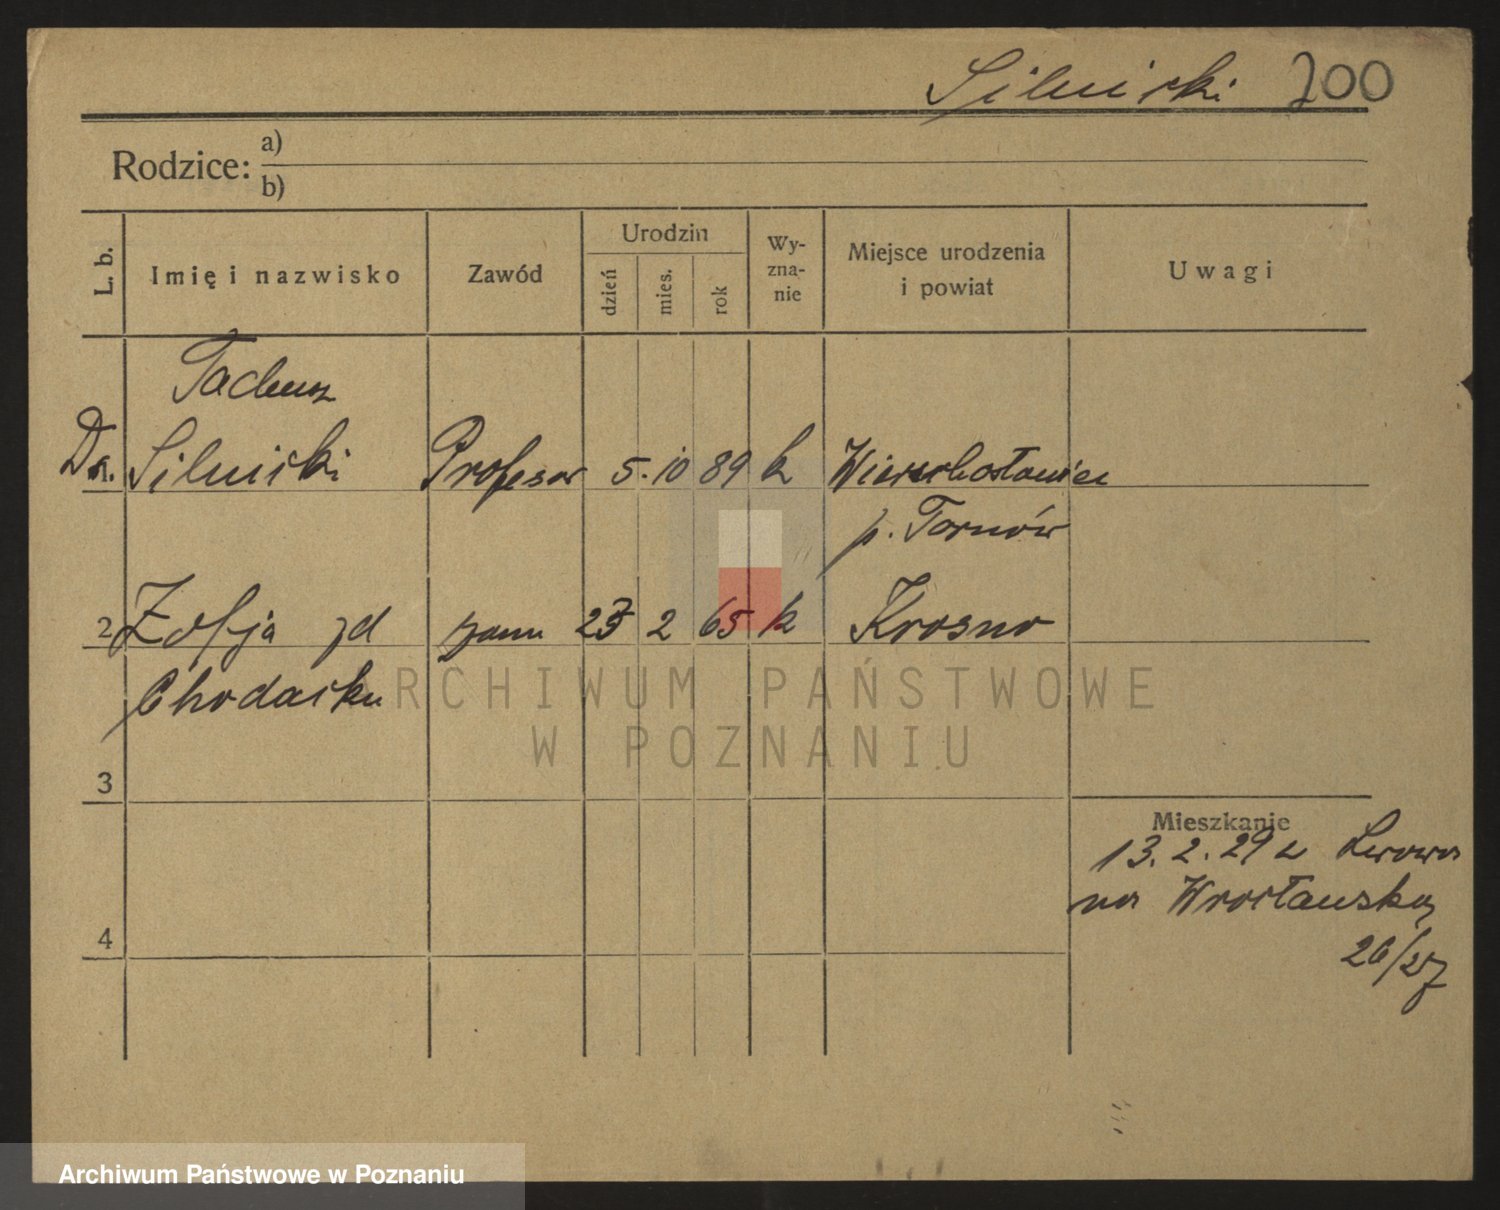 Silnicki 200
Rodzice: a)
b)
L. b.
Imię i nazwisko
Zawód
Urodzin
dzień
mies.
rok
Wy-
zna-
nie
Miejsce urodzenia
i powiat
Uwagi
Tadeusz
Dr. 1. Silnicki Profesor 5. 10 89 k Wierzchosławice
p. Tarnów
2 Zofja zd 2 65 k Krosno
Chodacka
3
4
Mieszkanie
13. 2. 29 z Lwowa
na Wrocławską
26/27
ARCHIWUM PAŃSTWOWE
W POZNANIU
Archiwum Państwowe w Poznaniu